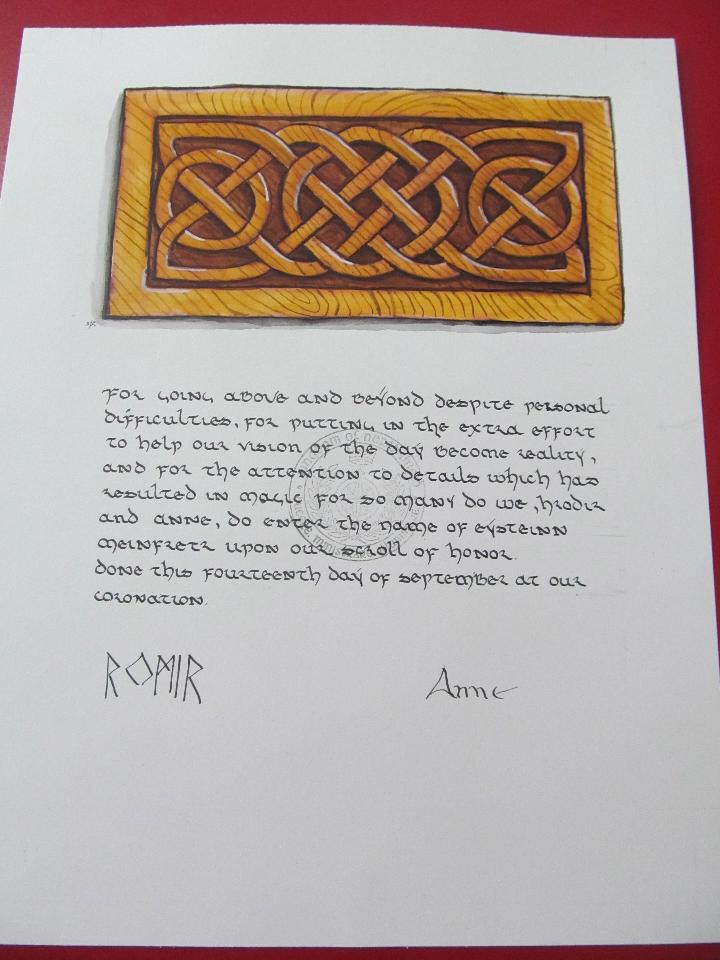 For going above and beyond despite personal
difficulties, for putting in the extra effort
to help our vision of the day become reality,
and for the attention to details which has
resulted in magic for so many do we, Hrodir
and Anne, do enter the name of Eysteinn
Meinfretr upon our scroll of honor.
Done this fourteenth day of September at our
coronation.
ᚱᛟᛗᛁᚱ
Anne